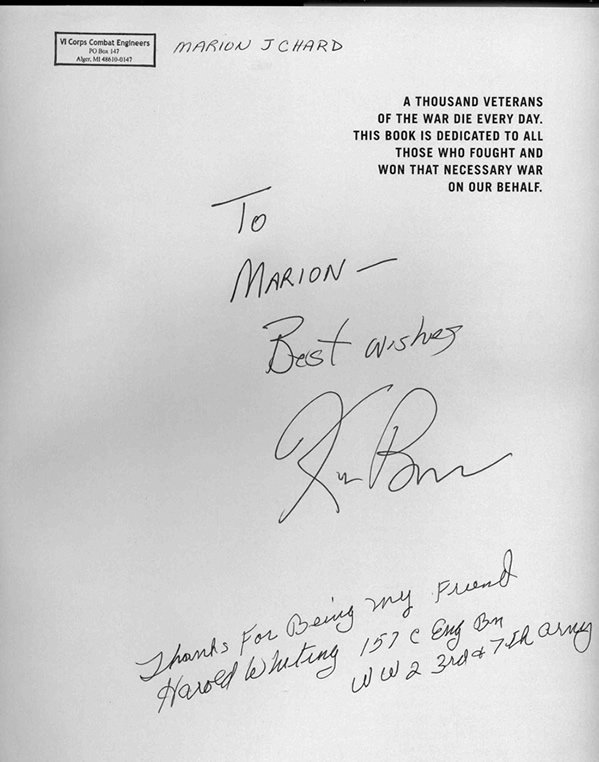 VI Corps Combat Engineers
PO Box 147
Alger, MI 48610-0147
MARION J CHARD
A THOUSAND VETERANS
OF THE WAR DIE EVERY DAY.
THIS BOOK IS DEDICATED TO ALL
THOSE WHO FOUGHT AND
WON THAT NECESSARY WAR
ON OUR BEHALF.
To
MARION —
Best wishes
Ken Burns
Thanks For Being My Friend
Harold Whiting 157 C Eng Bn
WW2 3rd & 7th Army